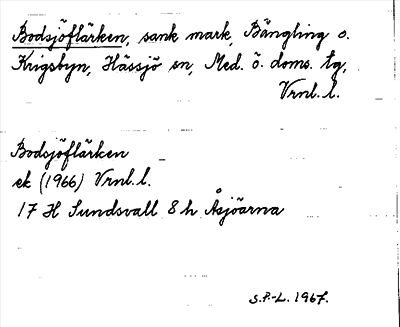 Bodsjöflärken, sank mark, Bängling o.
Krigsbyn, Hässjö sn, Med. ö. doms. tg,
Vrnl. l.
Bodsjöflärken
ek (1966) Vrnl. l.
17 H Sundsvall 8 h Åsjöarna
S.P.-L. 1967.